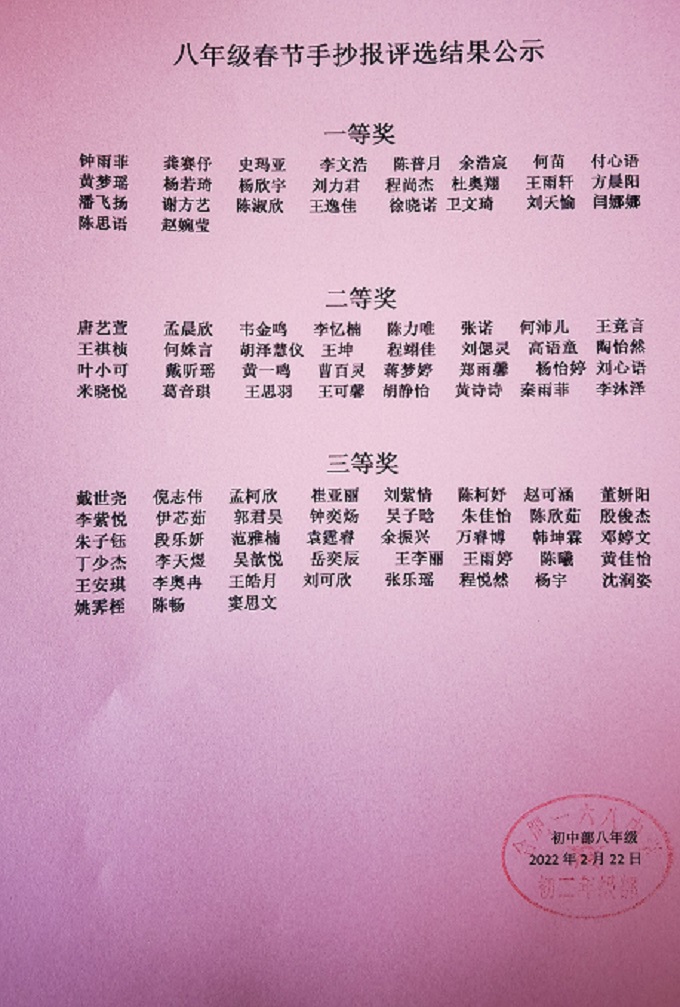 八年级春节手抄报评选结果公示
一等奖
钟雨菲 龚赛伃 史玛亚 李文浩 陈普月 余浩宸 何苗 付心语
黄梦瑶 杨若琦 杨欣宇 刘力君 程尚杰 杜奥翔 王雨轩 方晨阳
潘飞扬 谢方艺 陈淑欣 王逸佳 徐晓诺 卫文琦 刘天愉 闫娜娜
陈思语 赵婉莹
二等奖
唐艺萱 孟晨欣 韦金鸣 李忆楠 陈力唯 张诺 何沛儿 王竞言
王祺桢 何姝言 胡泽慧仪 王坤 程翊佳 刘偲灵 高语童 陶怡然
叶小可 戴昕瑶 黄一鸣 曹百灵 蒋梦婷 郑雨馨 杨怡婷 刘心语
米晓悦 葛音琪 王思羽 王可馨 胡静怡 黄诗诗 秦雨菲 李沐泽
三等奖
戴世尧 倪志伟 孟柯欣 崔亚丽 刘紫情 陈柯妤 赵可涵 董妍阳
李紫悦 伊芯茹 郭君昊 钟奕炀 吴子晗 朱佳怡 陈欣茹 殷俊杰
朱子钰 段乐妍 范雅楠 袁霆睿 余振兴 万睿博 韩坤霖 邓婷文
丁少杰 李天煜 吴歆悦 岳奕辰 王李丽 王雨婷 陈曦 黄佳怡
王安琪 李奥冉 王皓月 刘可欣 张乐瑶 程悦然 杨宇 沈润姿
姚霁桎 陈畅 窦思文
初中部八年级
2022 年 2 月 22 日